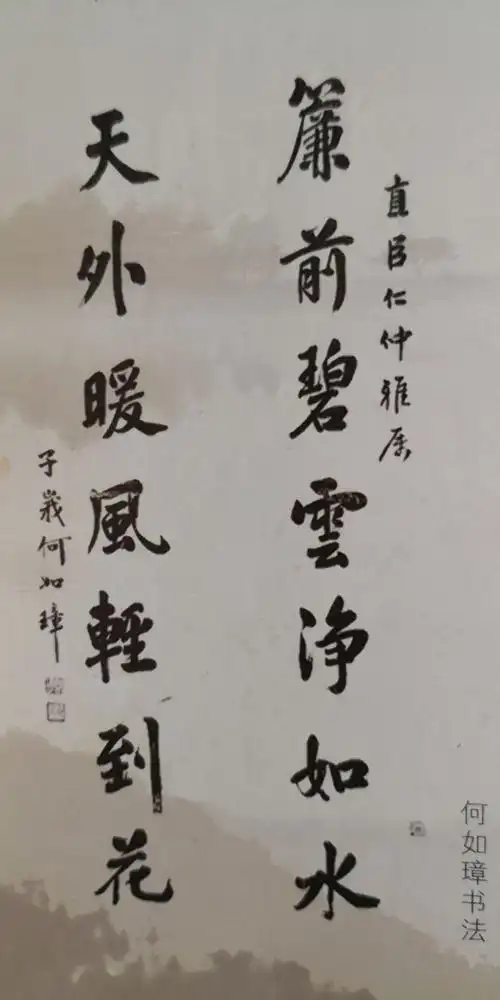 直臣仁仲雅属
簾前碧雲浄如水
天外暖風輕到花
子峩何如璋
何如璋书法